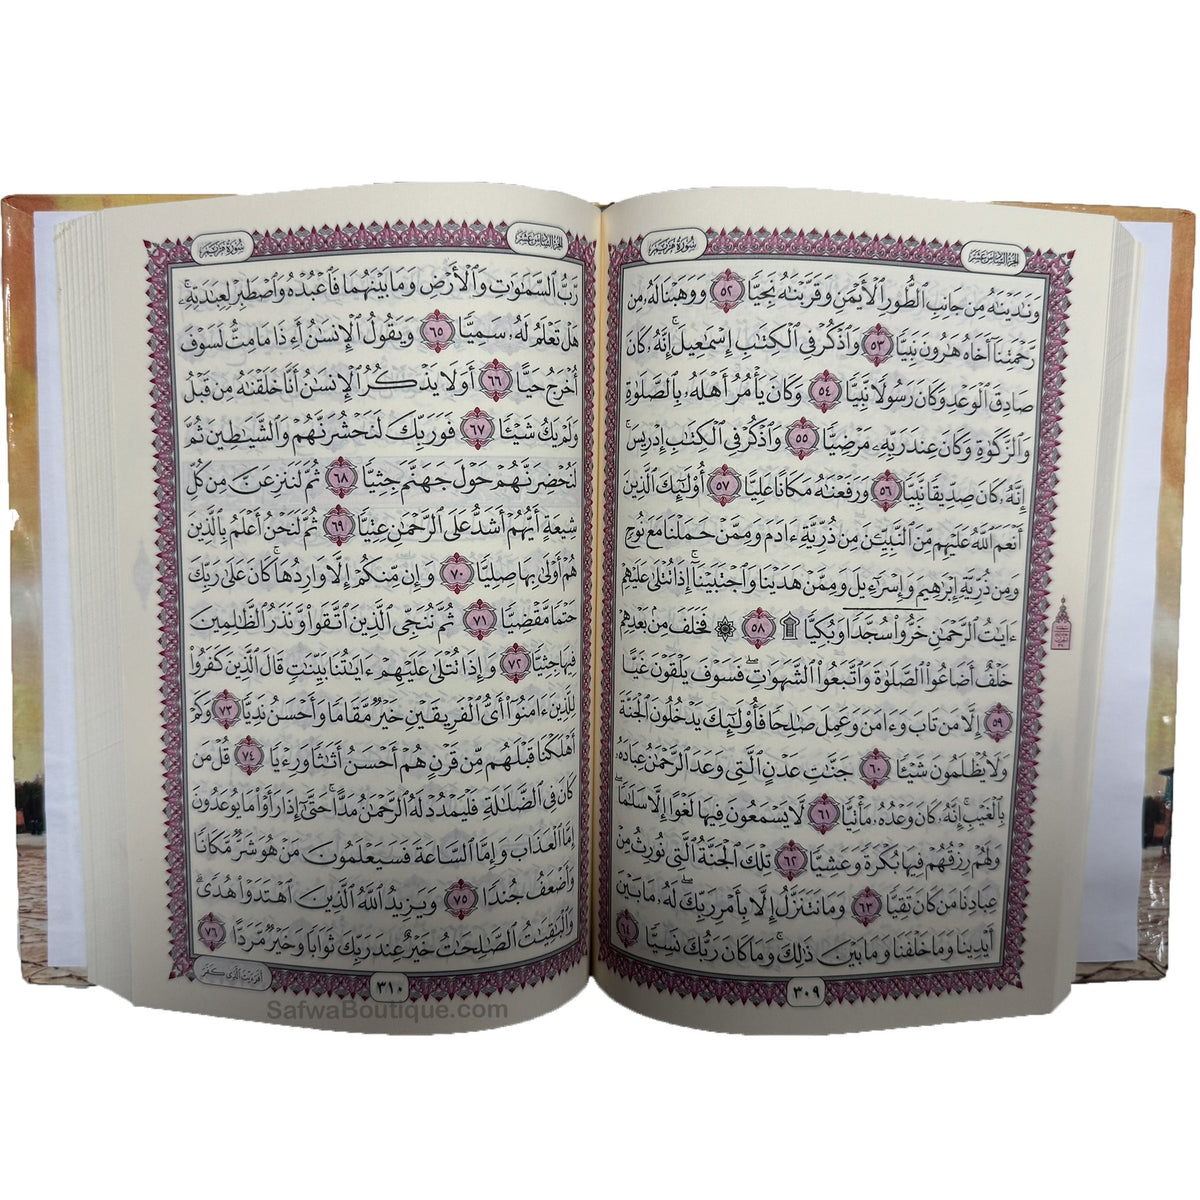 سُورَةُ مَرْيَم
الجُزْءُ السَّادِسَ عَشَر
وَنَٰدَيْنَٰهُ مِن جَانِبِ ٱلطُّورِ ٱلْأَيْمَنِ وَقَرَّبْنَٰهُ نَجِيًّا ٥٢ وَوَهَبْنَا لَهُۥ مِن
رَّحْمَتِنَآ أَخَاهُ هَٰرُونَ نَبِيًّا ٥٣ وَٱذْكُرْ فِى ٱلْكِتَٰبِ إِسْمَٰعِيلَ ۚ إِنَّهُۥ كَانَ
صَادِقَ ٱلْوَعْدِ وَكَانَ رَسُولًا نَّبِيًّا ٥٤ وَكَانَ يَأْمُرُ أَهْلَهُۥ بِٱلصَّلَوٰةِ
وَٱلزَّكَوٰةِ وَكَانَ عِندَ رَبِّهِۦ مَرْضِيًّا ٥٥ وَٱذْكُرْ فِى ٱلْكِتَٰبِ إِدْرِيسَ ۚ
إِنَّهُۥ كَانَ صِدِّيقًا نَّبِيًّا ٥٦ وَرَفَعْنَٰهُ مَكَانًا عَلِيًّا ٥٧ أُو۟لَٰٓئِكَ ٱلَّذِينَ
أَنْعَمَ ٱللَّهُ عَلَيْهِم مِّنَ ٱلنَّبِيِّـۧنَ مِن ذُرِّيَّةِ ءَادَمَ وَمِمَّنْ حَمَلْنَا مَعَ نُوحٍ
وَمِن ذُرِّيَّةِ إِبْرَٰهِيمَ وَإِسْرَٰٓءِيلَ وَمِمَّنْ هَدَيْنَا وَٱجْتَبَيْنَآ ۚ إِذَا تُتْلَىٰ عَلَيْهِمْ
ءَايَٰتُ ٱلرَّحْمَٰنِ خَرُّوا۟ سُجَّدًا وَبُكِيًّا ۩ ٥٨ ۞ فَخَلَفَ مِنۢ بَعْدِهِمْ
خَلْفٌ أَضَاعُوا۟ ٱلصَّلَوٰةَ وَٱتَّبَعُوا۟ ٱلشَّهَوَٰتِ ۖ فَسَوْفَ يَلْقَوْنَ غَيًّا
٥٩ إِلَّا مَن تَابَ وَءَامَنَ وَعَمِلَ صَٰلِحًا فَأُو۟لَٰٓئِكَ يَدْخُلُونَ ٱلْجَنَّةَ
وَلَا يُظْلَمُونَ شَيْـًٔا ٦٠ جَنَّٰتِ عَدْنٍ ٱلَّتِى وَعَدَ ٱلرَّحْمَٰنُ عِبَادَهُۥ
بِٱلْغَيْبِ ۚ إِنَّهُۥ كَانَ وَعْدُهُۥ مَأْتِيًّا ٦١ لَّا يَسْمَعُونَ فِيهَا لَغْوًا إِلَّا سَلَٰمًا ۖ
وَلَهُمْ رِزْقُهُمْ فِيهَا بُكْرَةً وَعَشِيًّا ٦٢ تِلْكَ ٱلْجَنَّةُ ٱلَّتِى نُورِثُ مِنْ
عِبَادِنَا مَن كَانَ تَقِيًّا ٦٣ وَمَا نَتَنَزَّلُ إِلَّا بِأَمْرِ رَبِّكَ ۖ لَهُۥ مَا بَيْنَ
أَيْدِينَا وَمَا خَلْفَنَا وَمَا بَيْنَ ذَٰلِكَ ۚ وَمَا كَانَ رَبُّكَ نَسِيًّا ٦٤
٣٠٩
سُورَةُ مَرْيَم
الجُزْءُ السَّادِسَ عَشَر
رَّبُّ ٱلسَّمَٰوَٰتِ وَٱلْأَرْضِ وَمَا بَيْنَهُمَا فَٱعْبُدْهُ وَٱصْطَبِرْ لِعِبَٰدَتِهِۦ ۚ
هَلْ تَعْلَمُ لَهُۥ سَمِيًّا ٦٥ وَيَقُولُ ٱلْإِنسَٰنُ أَءِذَا مَا مِتُّ لَسَوْفَ
أُخْرَجُ حَيًّا ٦٦ أَوَلَا يَذْكُرُ ٱلْإِنسَٰنُ أَنَّا خَلَقْنَٰهُ مِن قَبْلُ
وَلَمْ يَكُ شَيْـًٔا ٦٧ فَوَرَبِّكَ لَنَحْشُرَنَّهُمْ وَٱلشَّيَٰطِينَ ثُمَّ
لَنُحْضِرَنَّهُمْ حَوْلَ جَهَنَّمَ جِثِيًّا ٦٨ ثُمَّ لَنَنزِعَنَّ مِن كُلِّ
شِيعَةٍ أَيُّهُمْ أَشَدُّ عَلَى ٱلرَّحْمَٰنِ عِتِيًّا ٦٩ ثُمَّ لَنَحْنُ أَعْلَمُ بِٱلَّذِينَ
هُمْ أَوْلَىٰ بِهَا صِلِيًّا ٧٠ وَإِن مِّنكُمْ إِلَّا وَارِدُهَا ۚ كَانَ عَلَىٰ رَبِّكَ
حَتْمًا مَّقْضِيًّا ٧١ ثُمَّ نُنَجِّى ٱلَّذِينَ ٱتَّقَوا۟ وَّنَذَرُ ٱلظَّٰلِمِينَ
فِيهَا جِثِيًّا ٧٢ وَإِذَا تُتْلَىٰ عَلَيْهِمْ ءَايَٰتُنَا بَيِّنَٰتٍ قَالَ ٱلَّذِينَ كَفَرُوا۟
لِلَّذِينَ ءَامَنُوٓا۟ أَىُّ ٱلْفَرِيقَيْنِ خَيْرٌ مَّقَامًا وَأَحْسَنُ نَدِيًّا ٧٣ وَكَمْ
أَهْلَكْنَا قَبْلَهُم مِّن قَرْنٍ هُمْ أَحْسَنُ أَثَٰثًا وَرِءْيًا ٧٤ قُلْ مَن
كَانَ فِى ٱلضَّلَٰلَةِ فَلْيَمْدُدْ لَهُ ٱلرَّحْمَٰنُ مَدًّا ۚ حَتَّىٰٓ إِذَا رَأَوْا۟ مَا يُوعَدُونَ
إِمَّا ٱلْعَذَابَ وَإِمَّا ٱلسَّاعَةَ فَسَيَعْلَمُونَ مَنْ هُوَ شَرٌّ مَّكَانًا
وَأَضْعَفُ جُندًا ٧٥ وَيَزِيدُ ٱللَّهُ ٱلَّذِينَ ٱهْتَدَوْا۟ هُدًى ۗ
وَٱلْبَٰقِيَٰتُ ٱلصَّٰلِحَٰتُ خَيْرٌ عِندَ رَبِّكَ ثَوَابًا وَخَيْرٌ مَّرَدًّا ٧٦
أَفَرَءَيْتَ الَّذِى كَفَرَ
٣١٠
SafwaBoutique.com